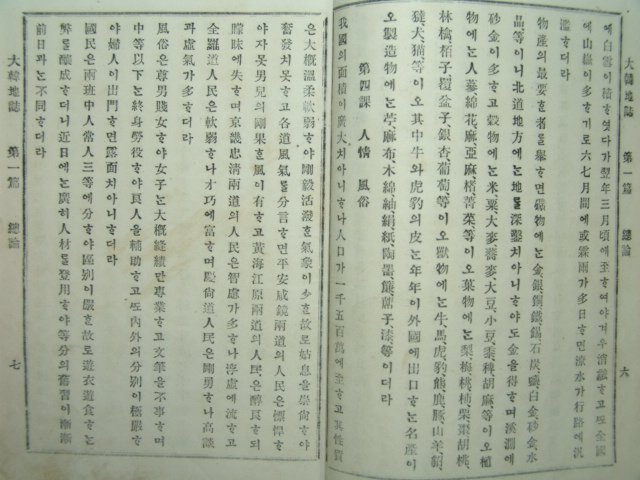 大韓地誌 第一篇 總論 六
에白雪이積ᄒᆞ엿다가翌年三月頃에至ᄒᆞ여야겨우消融ᄒᆞ고ᄯᅩ全國
에山嶽이多ᄒᆞ기로六七月間에或霖雨가多日ᄒᆞ면漲水가行路에汎
濫ᄒᆞ더라
物産의最要ᄒᆞᆫ者를擧ᄒᆞ면礦物에ᄂᆞᆫ金銀銅鐵錫石炭礬白金砂金水
晶等이니北道地方에ᄂᆞᆫ地를深鑿치아니ᄒᆞ야도金을得ᄒᆞ며溪澗에
砂金이多ᄒᆞ고穀物에ᄂᆞᆫ米粟大麥蕎麥大豆、小豆、黍稗胡麻等이오植
物에ᄂᆞᆫ人蔘綿花麻亞麻楮菁菜等이오菓物에ᄂᆞᆫ梨、梅桃柿栗棗胡桃、
林檎栢子、覆盆子銀杏、葡萄等이오獸物에ᄂᆞᆫ牛、馬、虎、豹、熊、鹿、豚、山羊、貂、
獺、犬、猫、等이오其中牛와虎豹의皮ᄂᆞᆫ年年이外國에出口ᄒᆞᄂᆞᆫ名産이
오製造物에ᄂᆞᆫ苧麻布、木綿紬、絹、紙、陶器、簾、扇子、漆等이더라
第四課 人情 風俗
我國의面積이廣大치아니ᄒᆞ나人口가一千五百萬에至ᄒᆞ고其性質
은大槪溫柔軟弱ᄒᆞ야剛毅活潑ᄒᆞᆫ氣象이少ᄒᆞᆫ故로姑息을崇尙ᄒᆞ야
奮發치못ᄒᆞ고各道風氣를分言ᄒᆞ면平安咸鏡兩道의人民은慓悍ᄒᆞ
야ᄌᆞ못男兒의剛果ᄒᆞᆫ風이有ᄒᆞ고黃海江原兩道의人民은醇良ᄒᆞ되
矇昧에失ᄒᆞ며京畿忠淸兩道의人民은智慮가多ᄒᆞ나浮虛에流ᄒᆞ고
全羅道人民은軟弱ᄒᆞ나才巧에富ᄒᆞ며慶尙道人民은剛勇ᄒᆞ나高談
과虛氣가多ᄒᆞ더라
風俗은尊男賤女ᄒᆞ야女子ᄂᆞᆫ大槪縫績만專業ᄒᆞ고文筆을不事ᄒᆞ며
中等以下ᄂᆞᆫ終身勞役ᄒᆞ야良人을輔助ᄒᆞ고ᄯᅩ內外의分別이極嚴ᄒᆞ
야婦人이出門ᄒᆞ면露面치아니ᄒᆞ더라
國民은兩班中人常人三等에分ᄒᆞ야區別이嚴ᄒᆞᆫ故로遊衣遊食ᄒᆞᄂᆞᆫ
弊를釀成ᄒᆞ더니近日에ᄂᆞᆫ廣히人材를登用ᄒᆞ야等分의舊習이漸漸
前日과ᄂᆞᆫ不同ᄒᆞ더라
大韓地誌 第一篇 總論 七